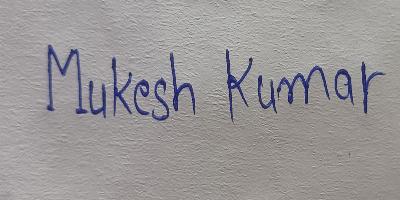 Mukesh Kumar